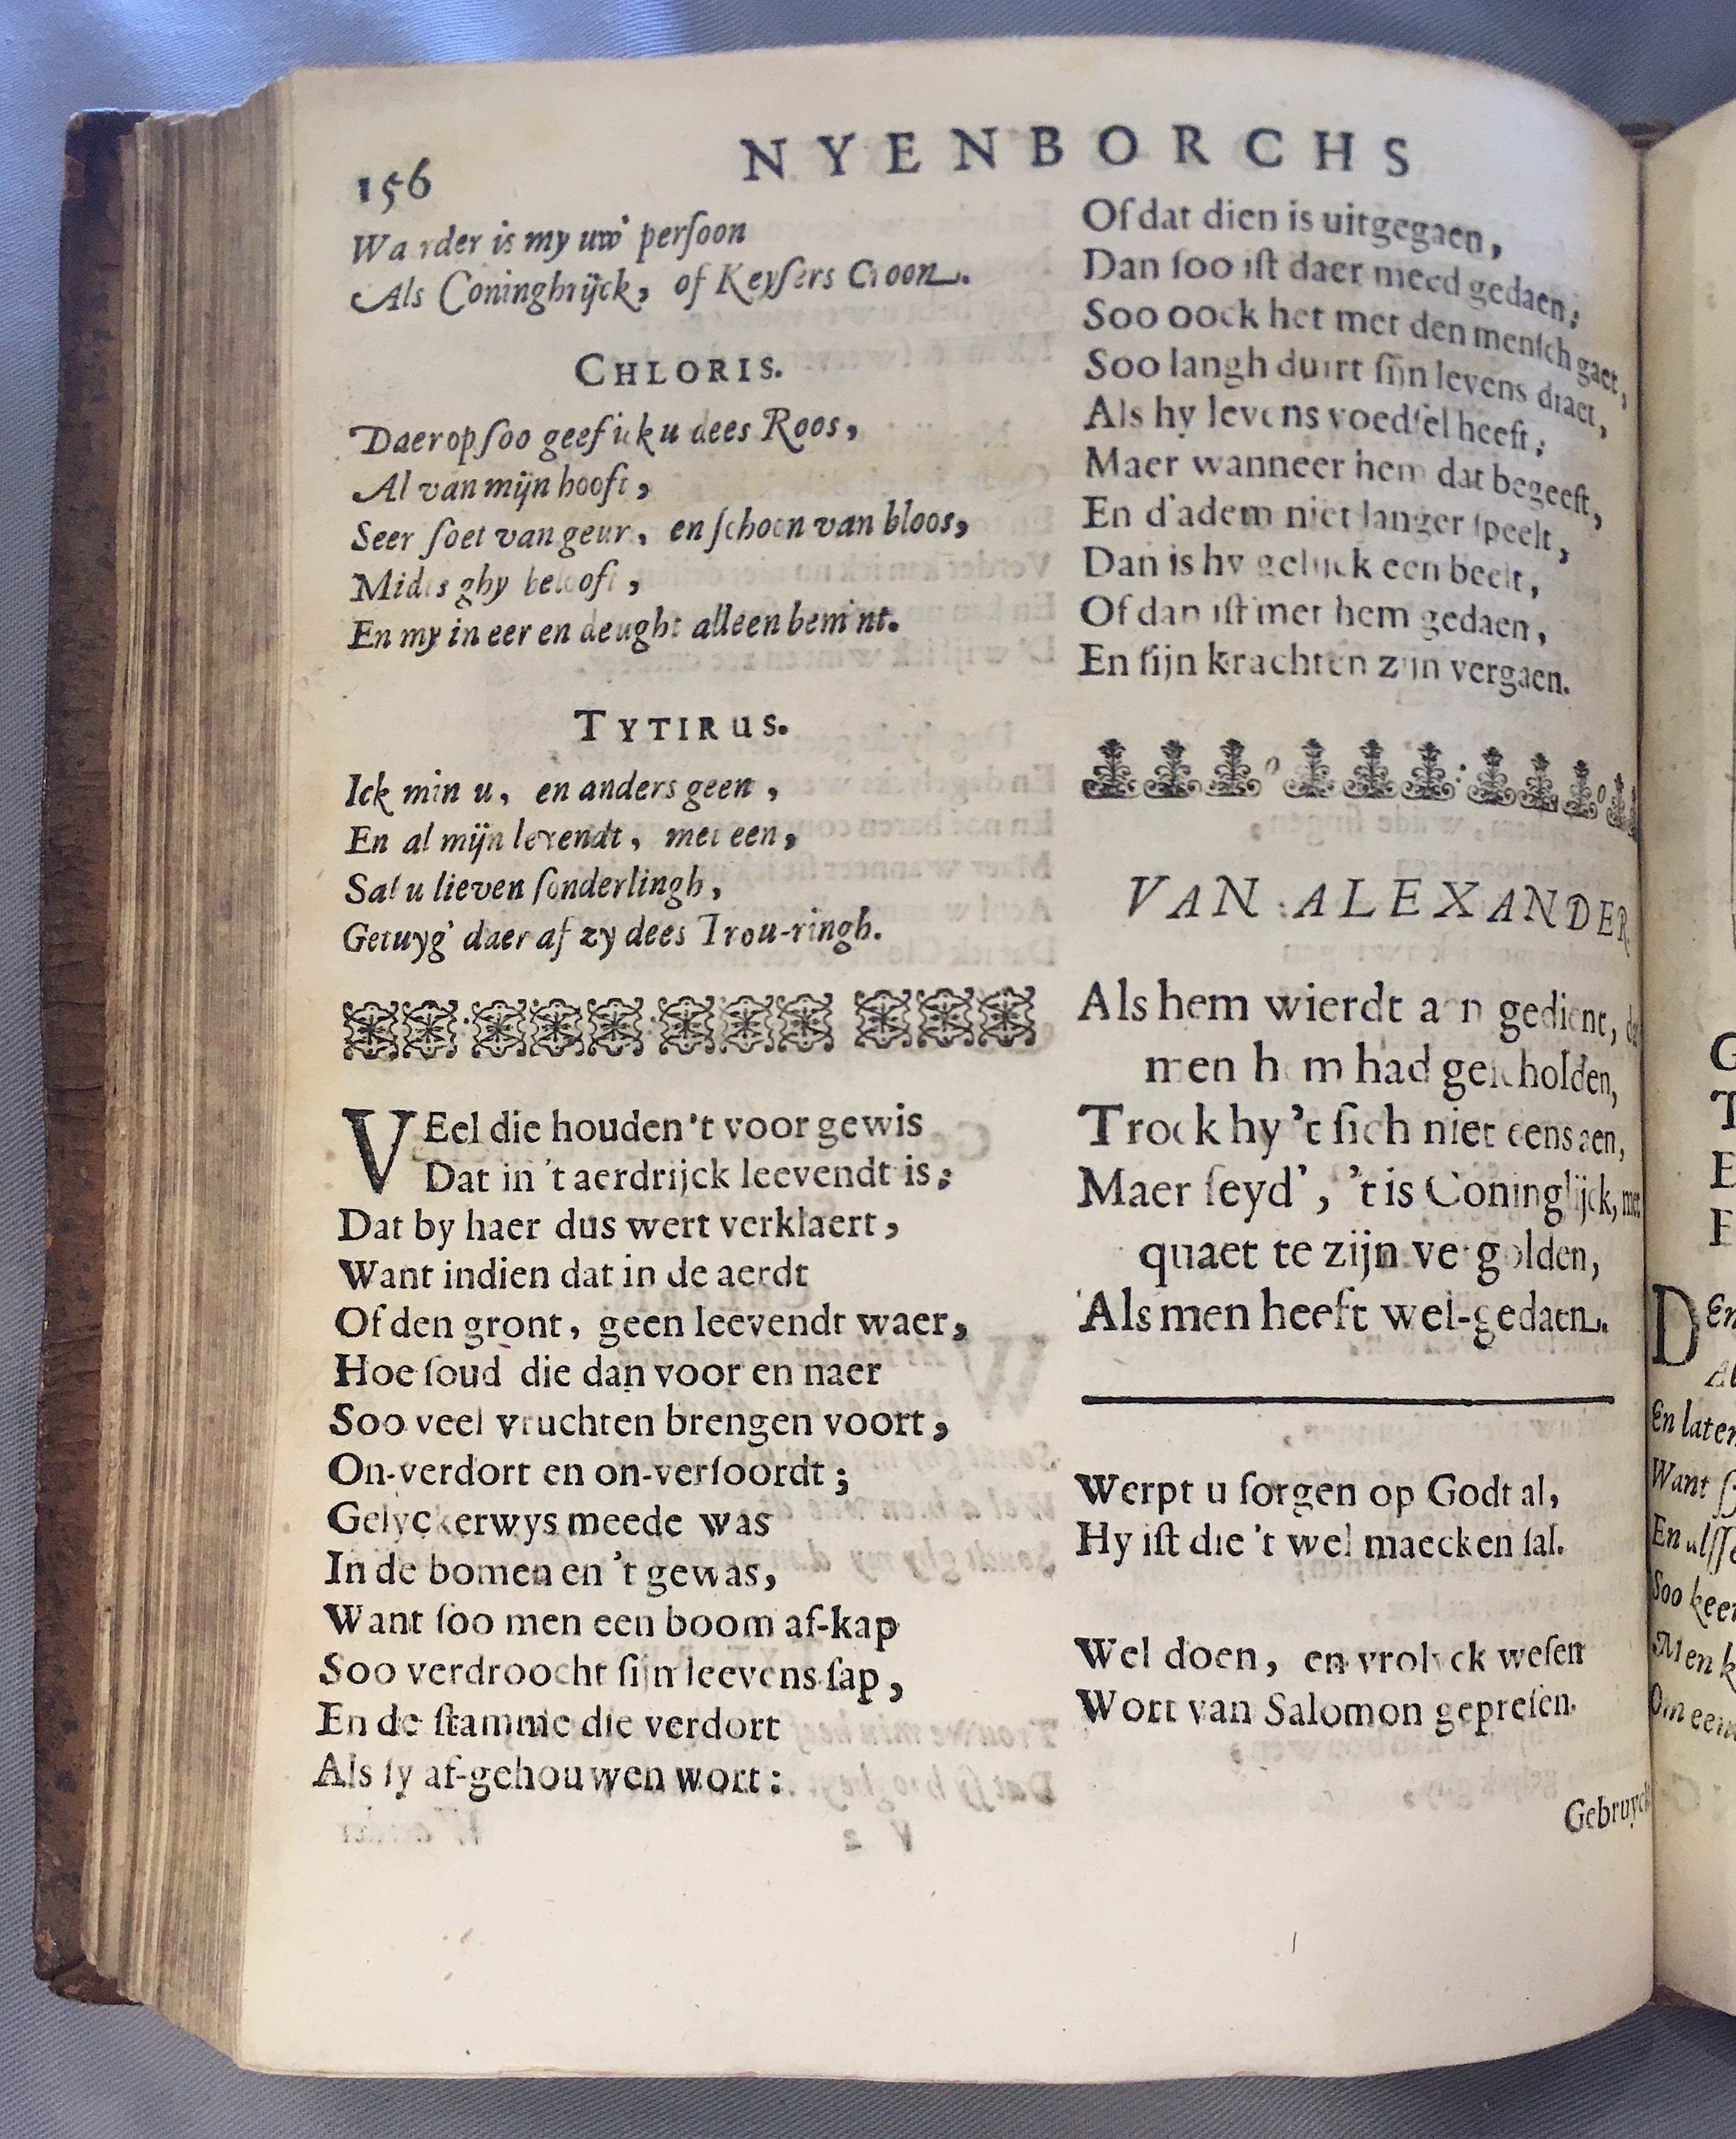 156
NYENBORCHS
Waerder is my uw' perſoon
Als Coninghrijck, of Keyſers Croon.
CHLORIS.
Daer op ſoo geef ick u dees Roos,
Al van mijn hooft,
Seer ſoet van geur, en ſchoon van bloos,
Mids ghy belooft,
En my in eer en deught alleen bemint.
TYTIRUS.
Ick min u, en anders geen,
En al mijn levendt, met een,
Sal u lieven ſonderlingh,
Getuyg' daer af zy dees Trou-ringh.
VEel die houden't voor gewis
Dat in 't aerdrijck leevendt is;
Dat by haer dus wert verklaert,
Want indien dat in de aerdt
Of den gront, geen leevendt waer,
Hoe ſoud die dan voor en naer
Soo veel vruchten brengen voort,
On-verdort en on-verſoordt;
Gelyckerwys meede was
In de bomen en 't gewas,
Want ſoo men een boom af-kap
Soo verdroocht ſijn leevens ſap,
En de ſtamme die verdort
Als ſy af-gehouwen wort:
Of dat dien is uitgegaen,
Dan ſoo iſt daer meed gedaen;
Soo oock het met den menſch gaet,
Soo langh duirt ſijn levens draet,
Als hy levens voedſel heeft;
Maer wanneer hem dat begeeft,
En d'adem niet langer ſpeelt,
Dan is hy gelijck een beelt,
Of dan iſt met hem gedaen,
En ſijn krachten zijn vergaen.
VAN ALEXANDER
Als hem wierdt aen gedient, dat
men hem had geſcholden,
Trock hy 't ſich niet eens aen,
Maer ſeyd', 't is Coninglijck, met
quaet te zijn vergolden,
Als men heeft wel-gedaen.
Werpt u ſorgen op Godt al,
Hy iſt die 't wel maecken ſal.
Wel doen, en vrolyck weſen
Wort van Salomon gepreſen.
Gebruyck
En later
Want
Soo keer
Men k
Om een